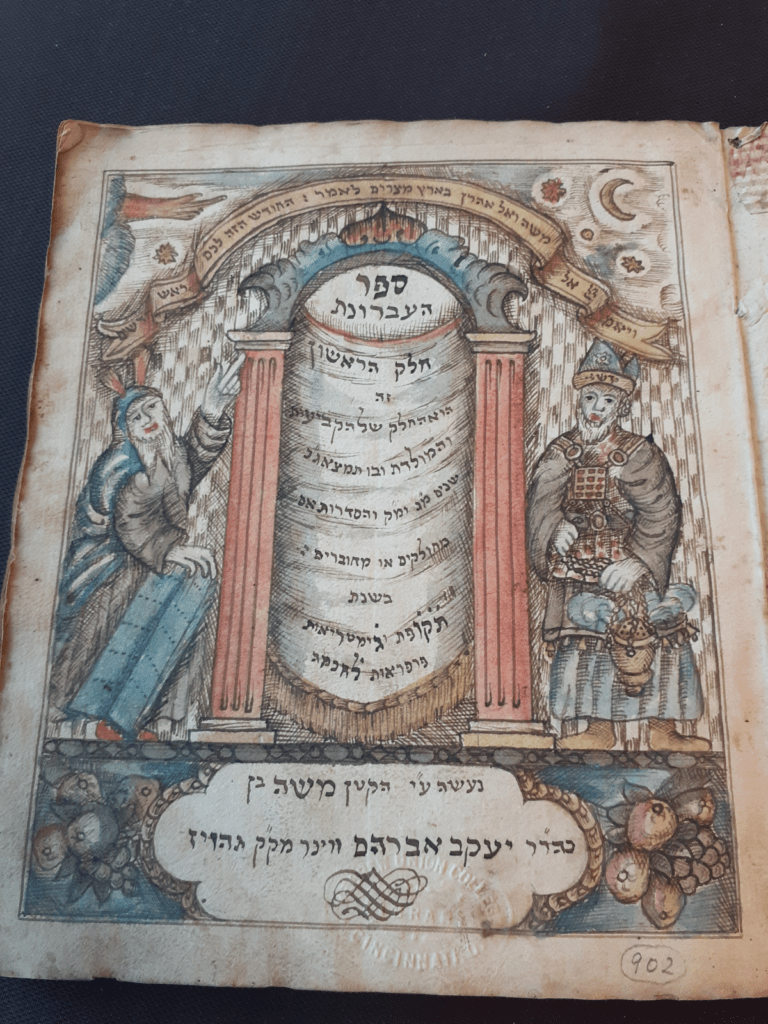 אל משה ואל אהרן בארץ מצרים לאמר : החודש הזה לכם ראש
ספר
העברונת
חלק הראשון
זה
הוא החלק של הקביעות
והמולדת ובו תמצא
שנים והסדרות אם
מחולקים או מחוברים
בשנת
תקופת וגימטריאות
פרפראות לחכמה
נעשה ע״י הקטן משה בן
כהר״ר יעקב אברהם ווינר מק״ק
UNION COLLEGE
CINCINNATI, O.
902